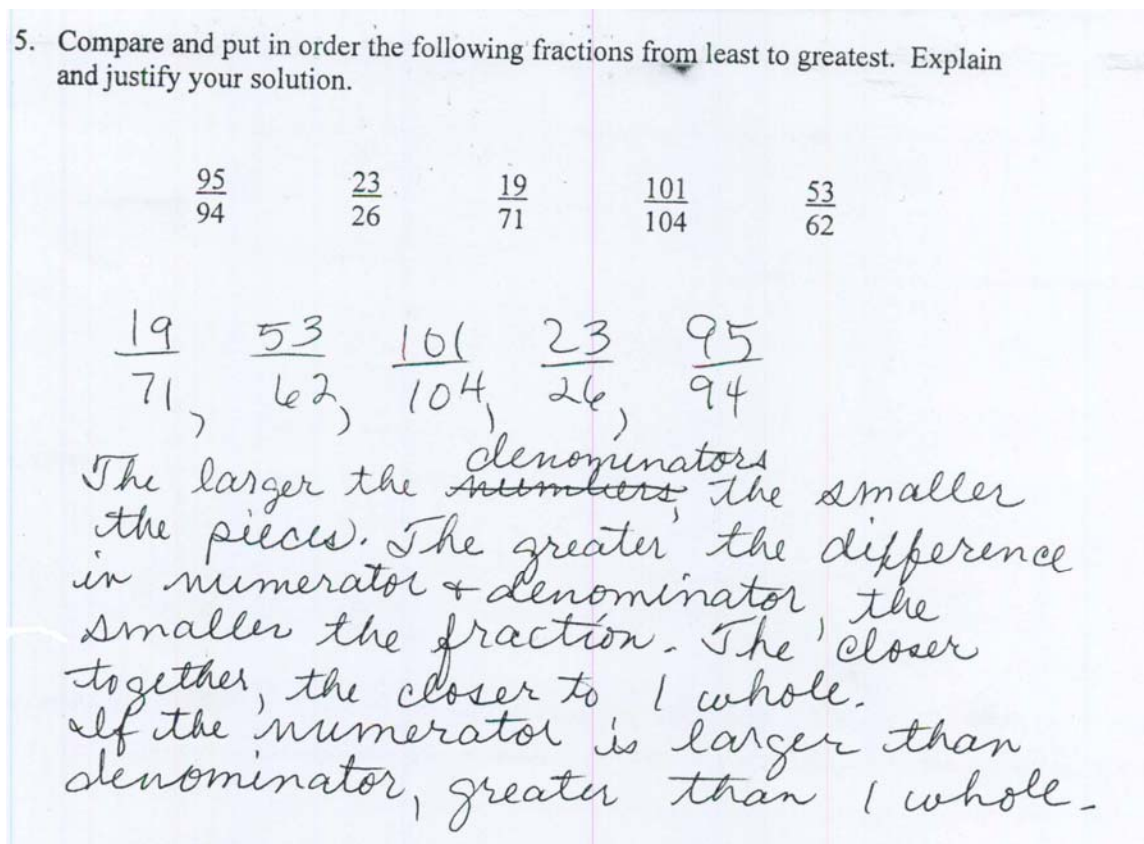 5. Compare and put in order the following fractions from least to greatest. Explain
and justify your solution.
95/94 23/26 19/71 101/104 53/62
19/71, 53/62, 101/104, 23/26, 95/94
denominators
The larger the numbers, the smaller
the pieces. The greater the difference
in numerator + denominator, the
smaller the fraction. The closer
together, the closer to 1 whole.
If the numerator is larger than
denominator, greater than 1 whole.